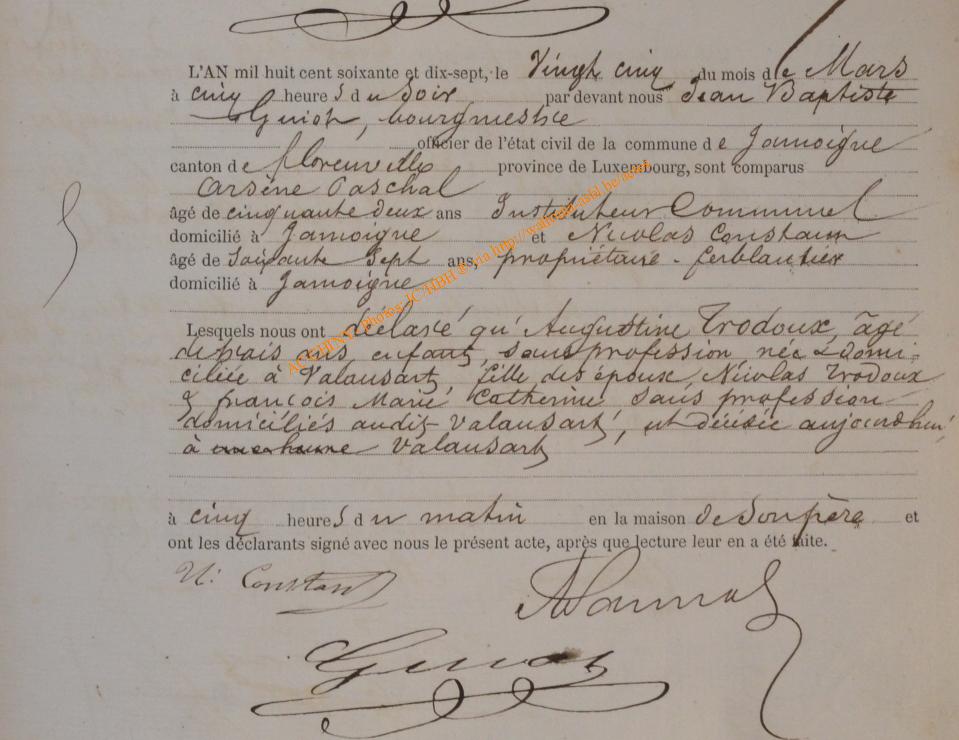 L'AN mil huit cent soixante et dix-sept, le Vingt cinq du mois de Mars
à cinq heures du Soir par devant nous Jean Baptiste
bourgmestre
officier de l'état civil de la commune de Jamoigne
canton de florenville province de Luxembourg, sont comparus
Arsène Paschal
âgé de cinquante deux ans Instituteur Communel
domicilié à Jamoigne et Nicolas Constant
âgé de Soixante Sept ans, propriétaire - ferblantier
domicilié à Jamoigne
Lesquels nous ont déclaré qu'Augustine Trodoux, âgé
de trois ans, enfant, sans profession, née & domi-
ciliée à Valansart, fille des époux, Nicolas Trodoux
& françois Marie Catherine sans profession
domiciliés audit Valansart, est décédée aujourd'hui,
à Valansart
à cinq heures du matin en la maison de Son père et
ont les déclarants signé avec nous le présent acte, après que lecture leur en a été faite.
N. Constant
ACGHINY Photos: JC/HBH © via http://wallonia-asbl.be/acmh